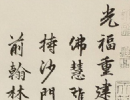 光福重建
佛慧雄
持沙門
前翰林